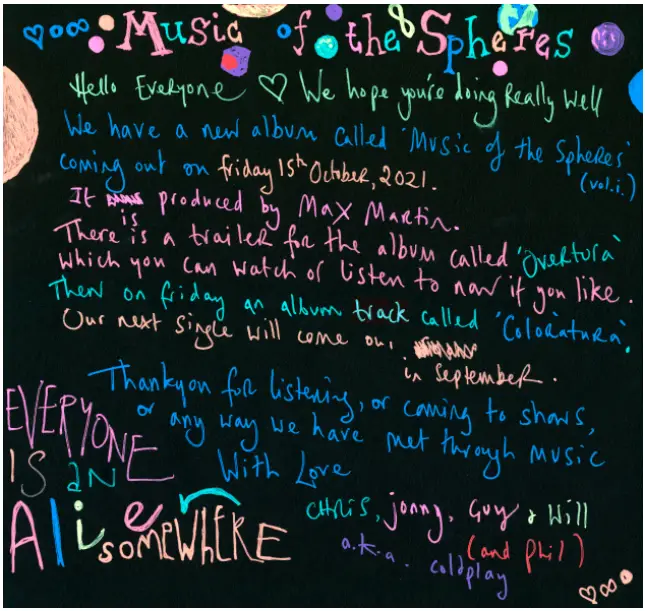 Music of the Spheres
Hello Everyone ♡ We hope you're doing Really Well
We have a new album called 'Music of the Spheres'
(vol.i.)
coming out on friday 15th October, 2021.
It is produced by Max Martin.
There is a trailer for the album called 'Overtura'
which you can watch or listen to now if you like.
Then on friday an album track called 'Coloratura'.
Our next single will come out
in September.
Thankyou for listening, or coming to shows,
or any way we have met through music
With Love
EVERYONE
IS aN
Alien
SOMEWHERE
CHRIS, jonny, Guy & Will
(and Phil)
a.k.a. coldplay